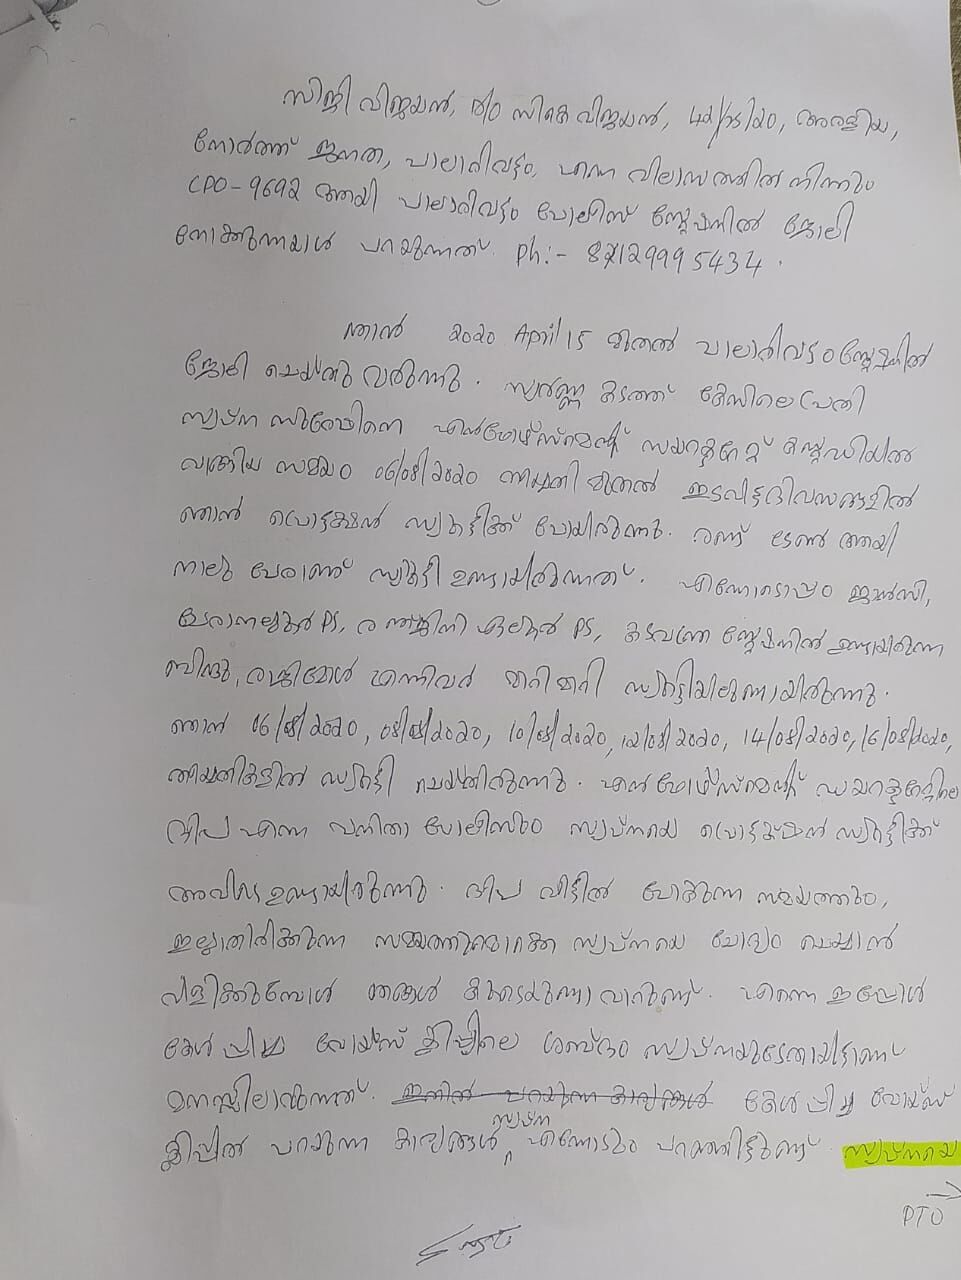 സിജി വിജയൻ, D/o സികെ വിജയൻ, അരളിയ,
നോർത്ത് ജനത, പാലാരിവട്ടം, എന്ന വിലാസത്തിൽ നിന്നും
CPO-9692 ആയി പാലാരിവട്ടം പോലീസ് സ്റ്റേഷനിൽ ജോലി
നോക്കുന്നയാൾ പറയുന്നത്. Ph:-
ഞാൻ 2020 April 15 മുതൽ പാലാരിവട്ടം സ്റ്റേഷനിൽ
ജോലി ചെയ്തു വരുന്നു. സ്വർണ്ണ കടത്ത് കേസിലെ പ്രതി
സ്വപ്ന സുരേഷിനെ എൻഫോഴ്സ്മെന്റ് ഡയറക്ടറേറ്റ് കസ്റ്റഡിയിൽ
വാങ്ങിയ സമയം 06/08/2020 തിയ്യതി മുതൽ ഇടവിട്ട ദിവസങ്ങളിൽ
ഞാൻ പ്രൊട്ടക്ഷൻ ഡ്യൂട്ടിക്ക് പോയിരുന്നു. രണ്ട് ടേൺ ആയി
നാലു പേരാണ് ഡ്യൂട്ടി ഉണ്ടായിരുന്നത്. എന്നോടൊപ്പം ജാൻസി,
ചേരാനല്ലൂർ PS, രഞ്ജിനി PS, കടവന്ത്ര സ്റ്റേഷനിൽ ഉണ്ടായിരുന്ന
ബിന്ദു, രാജിമോൾ എന്നിവർ മാറി മാറി ഡ്യൂട്ടിയിലുണ്ടായിരുന്നു.
ഞാൻ 06/08/2020, 08/08/2020, 10/08/2020, 12/08/2020, 14/08/2020, 16/08/2020,
തിയ്യതികളിൽ ഡ്യൂട്ടി ചെയ്തിരുന്നു. എൻഫോഴ്സ്മെന്റ് ഡയറക്ടറേറ്റിലെ
ദീപ എന്ന വനിതാ പോലീസും സ്വപ്നയെ പ്രൊട്ടക്ഷൻ ഡ്യൂട്ടിക്ക്
അവിടെ ഉണ്ടായിരുന്നു. ദീപ വീട്ടിൽ പോകുന്ന സമയത്തും,
ഇല്ലാതിരിക്കുന്ന സമയത്തുമൊക്കെ സ്വപ്നയെ ചോദ്യം ചെയ്യാൻ
വിളിക്കുമ്പോൾ ഞങ്ങൾ കൂടെയുണ്ടാവാറുണ്ട്. എന്നെ ഇപ്പോൾ
കേൾപ്പിച്ച വോയ്സ് ക്ലിപ്പിലെ ശബ്ദം സ്വപ്നയുടേതായിട്ടാണ്
മനസ്സിലാവുന്നത്. ഇതിൽ പറയുന്ന കാര്യങ്ങൾ കേൾപ്പിച്ച വോയ്സ്
ക്ലിപ്പിൽ പറയുന്ന കാര്യങ്ങൾ സ്വപ്ന എന്നോടും പറഞ്ഞിട്ടുണ്ട്. സ്വപ്നയെ
PTO